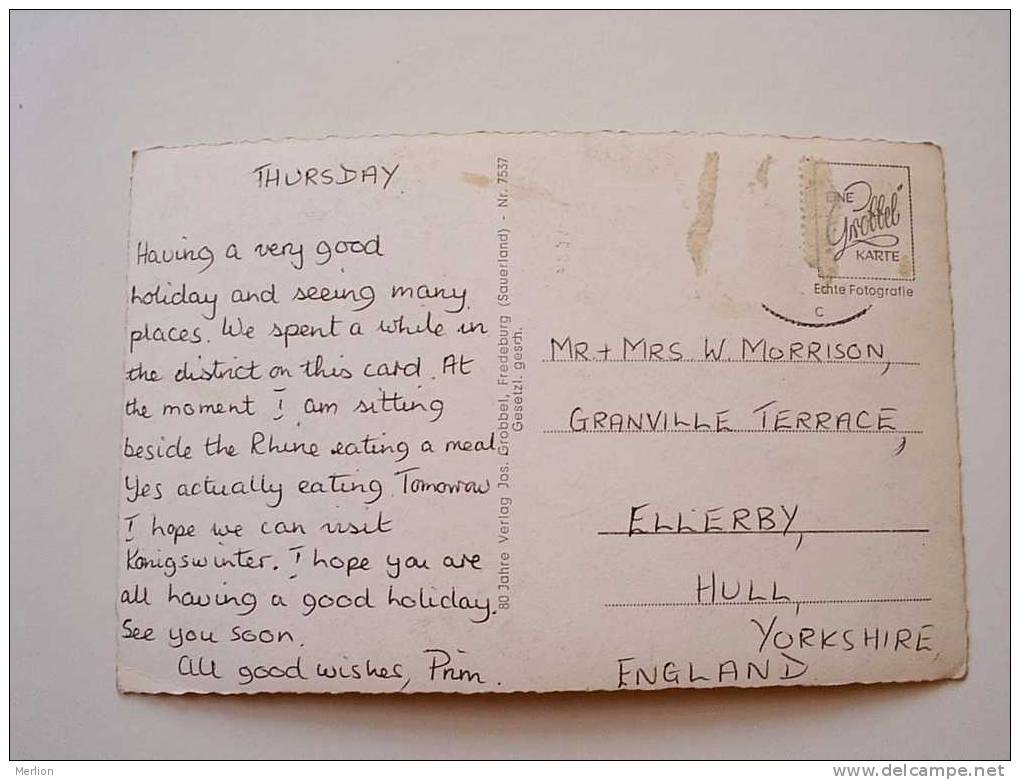 THURSDAY
Having a very good
holiday and seeing many
places. We spent a while in
the district on this card. At
the moment I am sitting
beside the Rhine eating a meal.
Yes actually eating. Tomorrow
I hope we can visit
Konigswinter. I hope you are
all having a good holiday.
See you soon.
All good wishes, Prim.
80 Jahre Verlag Jos. Grobbel, Fredeburg (Sauerland) - Nr. 7537
Gesetzl. gesch.
EINE
Grobbel
KARTE
Echte Fotografie
C
MR + MRS W. MORRISON,
GRANVILLE TERRACE,
ELLERBY,
HULL,
YORKSHIRE,
ENGLAND
Merlion
delcampe.net